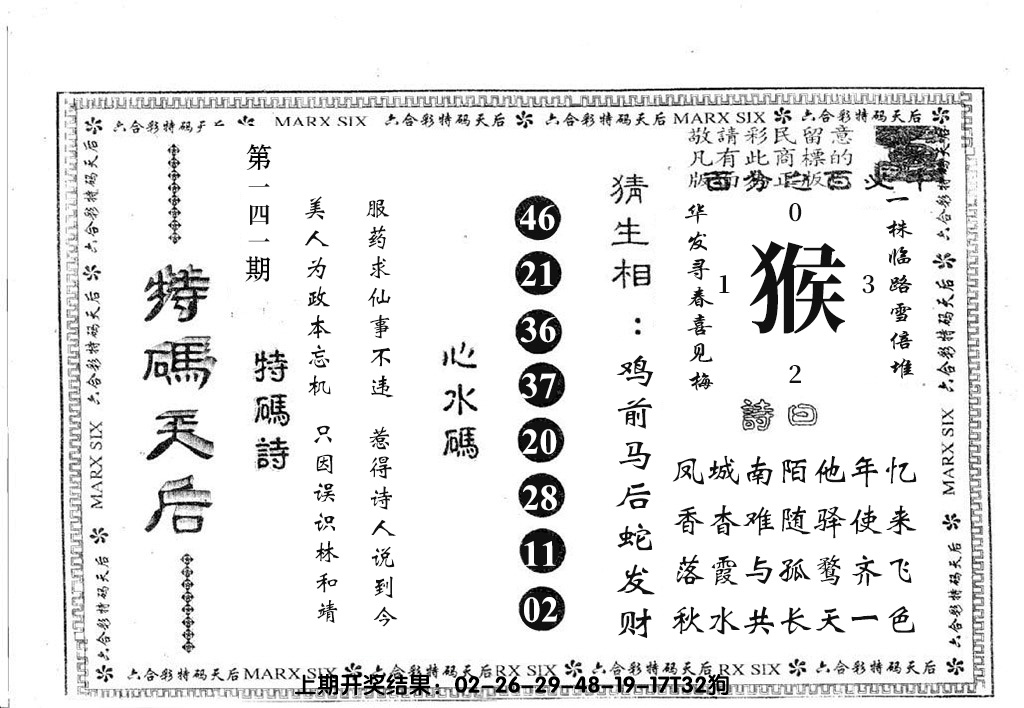 六合彩特码天后 MARX SIX 六合彩特码天后 六合彩特码天后 MARX SIX 六合彩特码天后
敬請彩民留意
凡有此商標的
版面為正版
百分之百
一株临路雪倍堆
华发寻春喜见梅
0
1 猴 3
2
詩曰
忆年他陌南城凤
来使驿随难杳香
飞齐鹜孤与霞落
色一天长共水秋
猜生相：鸡前马后蛇发财
46
21
36
37
20
28
11
02
心水碼
服药求仙事不违 惹得诗人说到今
美人为政本忘机 只因误识林和靖
特碼詩
第一四一期
特碼天后
六合彩特码天后 MARX SIX 六合彩特码天后
六合彩特码天后 MARX SIX 六合彩特码天后
六合彩特码天后 MARX SIX 六合彩特码天后 RX SIX 六合彩特码天后 RX SIX 六合彩特码天后
上期开奖结果：02-26-29-48-19-17T32狗